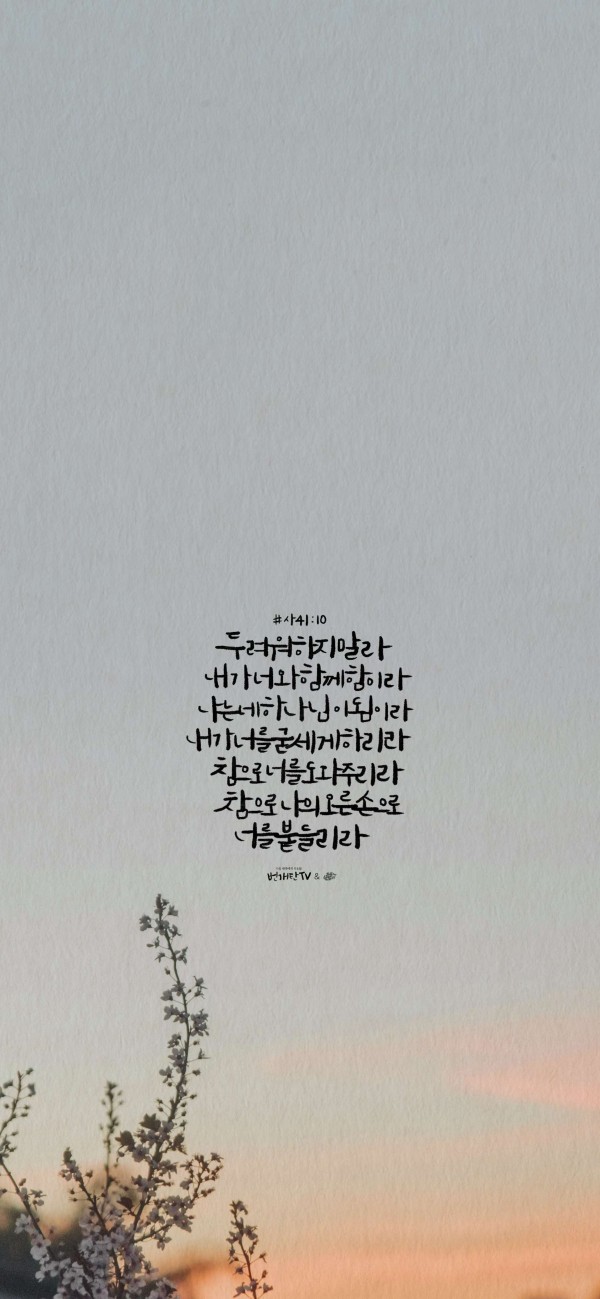 #사41:10
두려워하지말라
내가너와함께함이라
나는네하나님이됨이라
내가너를굳세게하리라
참으로너를도와주리라
참으로나의오른손으로
너를붙들리라
번개탄TV &